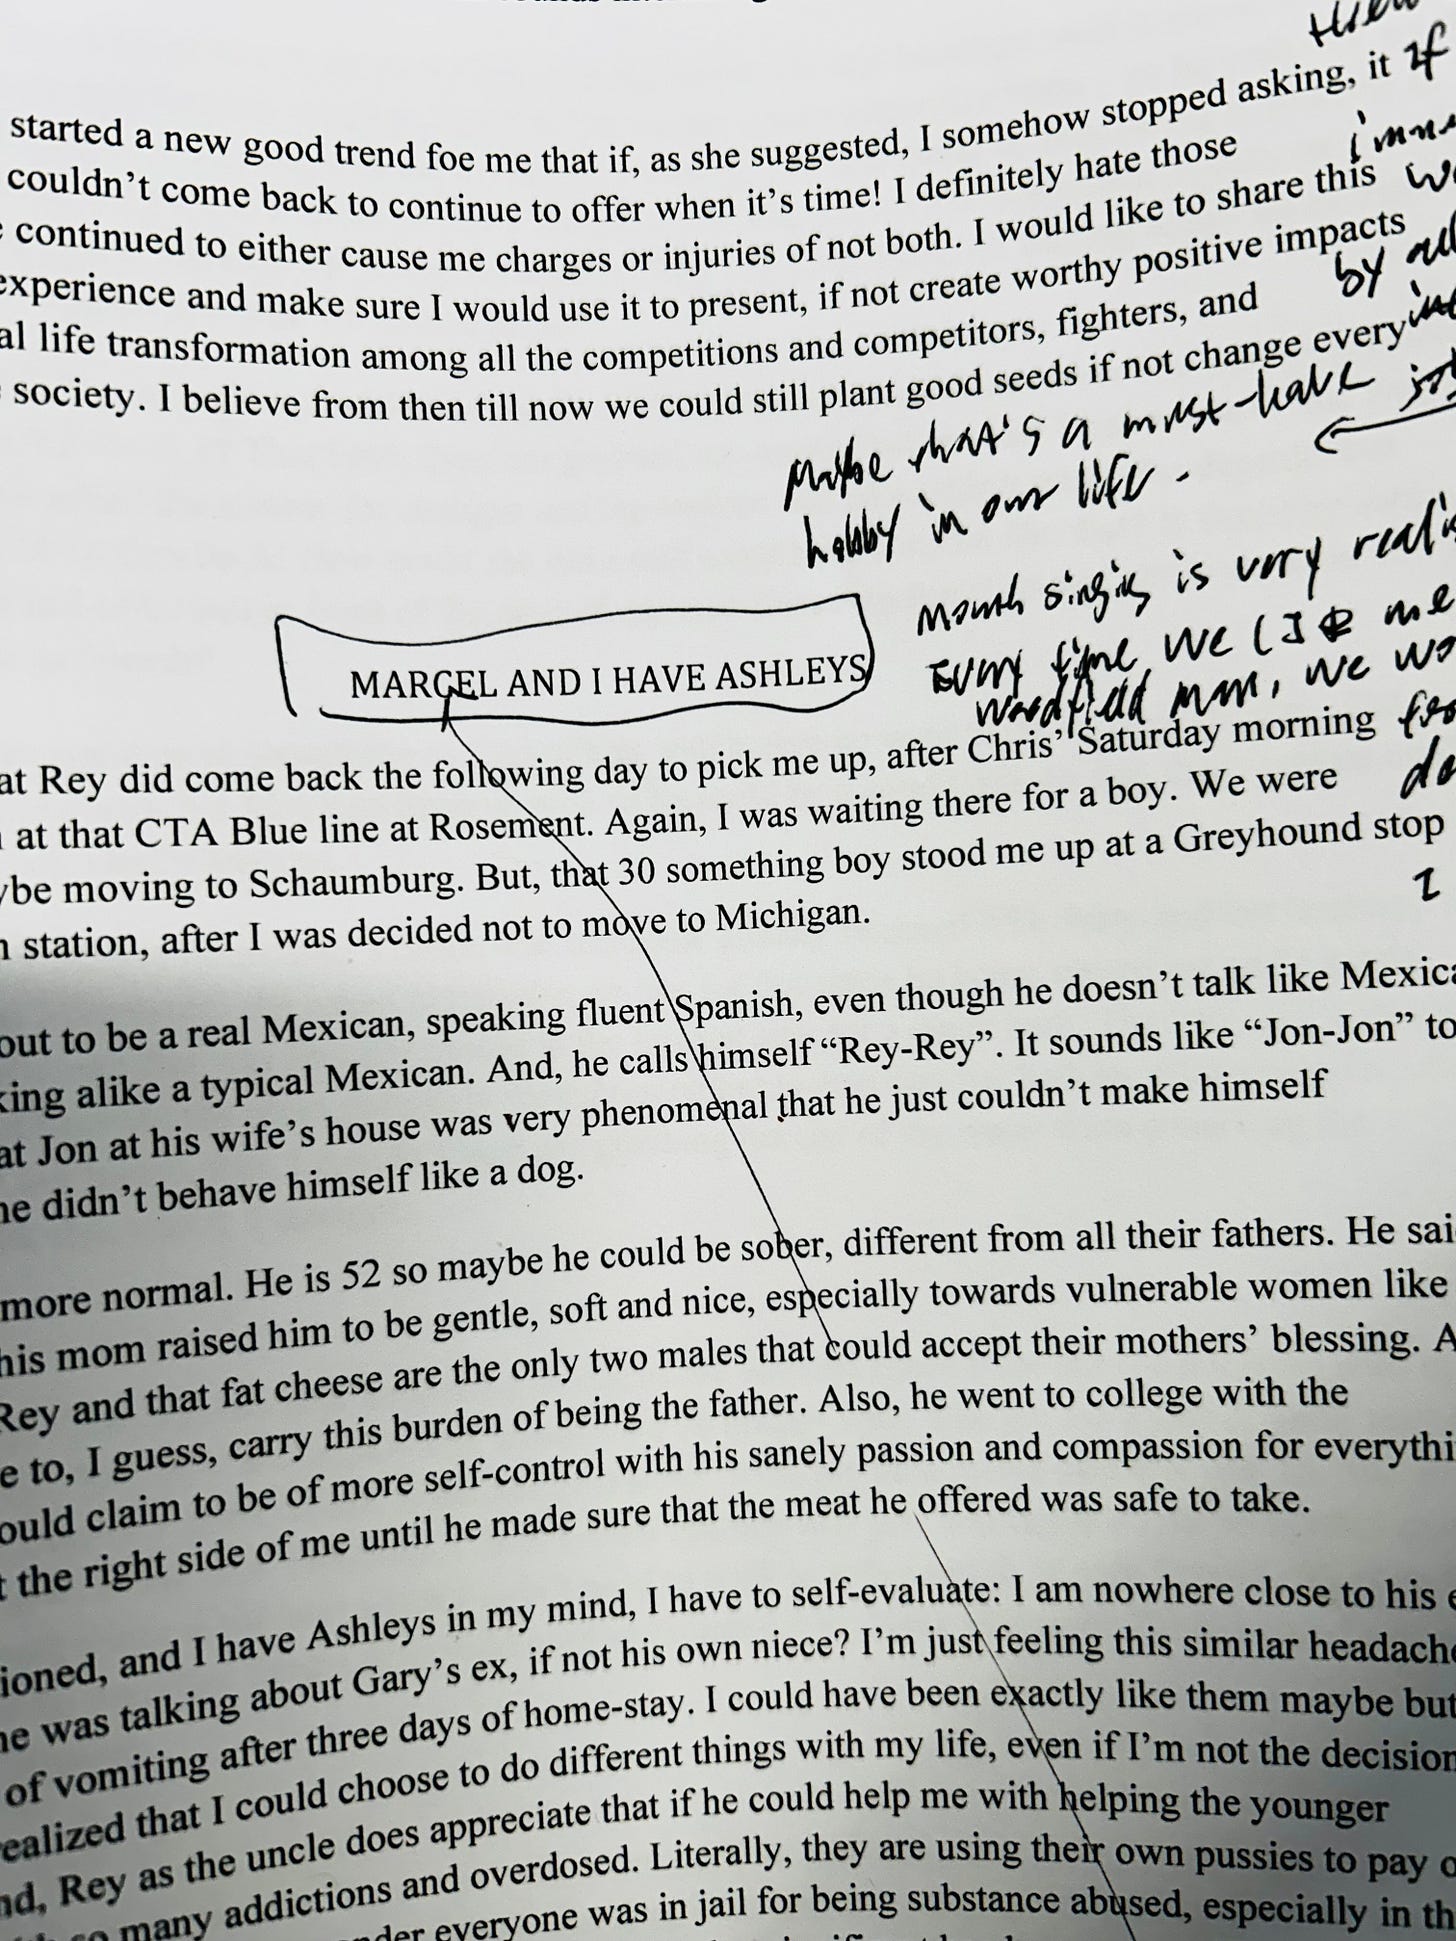 started a new good trend foe me that if, as she suggested, I somehow stopped asking, it If
couldn't come back to continue to offer when it's time! I definitely hate those
continued to either cause me charges or injuries of not both. I would like to share this
experience and make sure I would use it to present, if not create worthy positive impacts
al life transformation among all the competitions and competitors, fighters, and by
society. I believe from then till now we could still plant good seeds if not change every
Maybe that's a must-have
hobby in our life.
Mouth singing is very
Every time we me
Woodfield mall, we
MARCEL AND I HAVE ASHLEYS
at Rey did come back the following day to pick me up, after Chris' Saturday morning
at that CTA Blue line at Rosement. Again, I was waiting there for a boy. We were
ybe moving to Schaumburg. But, that 30 something boy stood me up at a Greyhound stop
n station, after I was decided not to move to Michigan.
out to be a real Mexican, speaking fluent Spanish, even though he doesn't talk like Mexica
king alike a typical Mexican. And, he calls himself “Rey-Rey”. It sounds like “Jon-Jon” to
at Jon at his wife's house was very phenomenal that he just couldn't make himself
he didn't behave himself like a dog.
more normal. He is 52 so maybe he could be sober, different from all their fathers. He sai
his mom raised him to be gentle, soft and nice, especially towards vulnerable women like
Rey and that fat cheese are the only two males that could accept their mothers' blessing. A
e to, I guess, carry this burden of being the father. Also, he went to college with the
ould claim to be of more self-control with his sanely passion and compassion for everythi
t the right side of me until he made sure that the meat he offered was safe to take.
ioned, and I have Ashleys in my mind, I have to self-evaluate: I am nowhere close to his e
he was talking about Gary's ex, if not his own niece? I'm just feeling this similar headache
of vomiting after three days of home-stay. I could have been exactly like them maybe but
realized that I could choose to do different things with my life, even if I'm not the decision
nd, Rey as the uncle does appreciate that if he could help me with helping the younger
so many addictions and overdosed. Literally, they are using their own pussies to pay o
nder everyone was in jail for being substance abused, especially in th